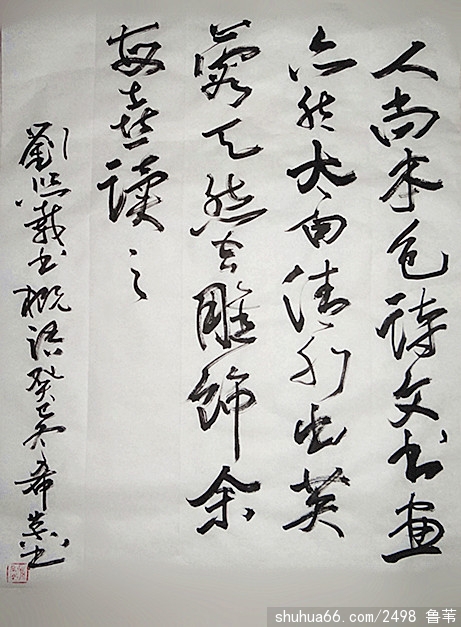 人尚本色诗文书画
亦然太白清水出芙
蓉天然去雕饰余
每喜读之
劉熙载书概语癸巳冬希书
shuhua66.com/2498 鲁苇